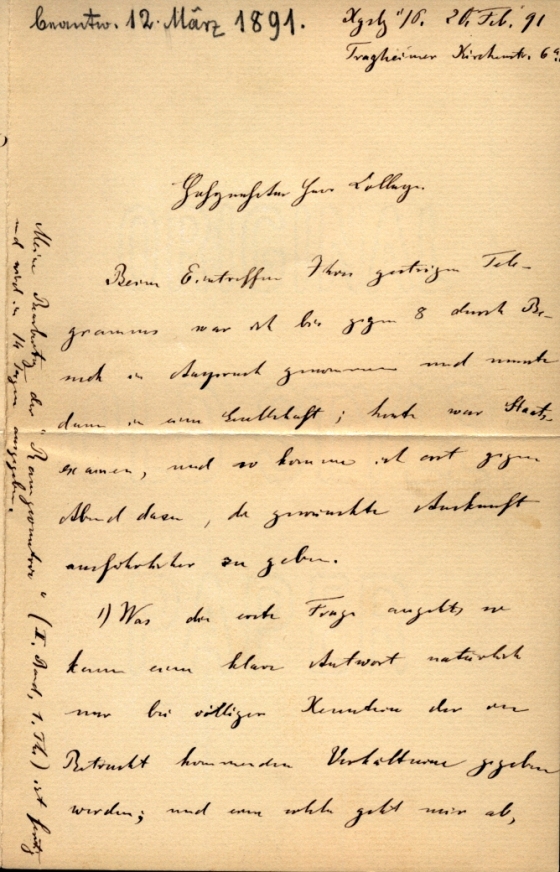 beantw. 12. März 1891.
Kgsbg i/P. 20. Feb. 91
Tragheimer Kirchenstr. 6
Hochgeehrter Herr College.
Beim Eintreffen Ihres gestrigen Tele-
gramms war ich bis gegen 8 durch Be-
such in Anspruch genommen und musste
dann in eine Gesellschaft; heute war Staats-
examen, und so komme ich erst gegen
Abend dazu, die gewünschte Auskunft
ausführlicher zu geben.
1) Was die erste Frage angeht, so
kann eine klare Antwort natürlich
nur bei völliger Kenntniss der in
Betracht kommenden Verhältnisse gegeben
werden; und eine solche geht mir ab,
Meine Bearbeitg der "Raumgeometrie" (II. Band, 1. Th.) ist fertig
und wird in 14 Tagen ausgegeben.